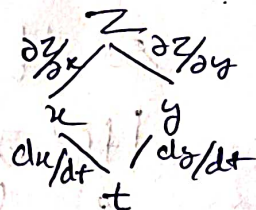 Z
∂Z/∂x ∂Z/∂y
x y
dx/dt dy/dt
t